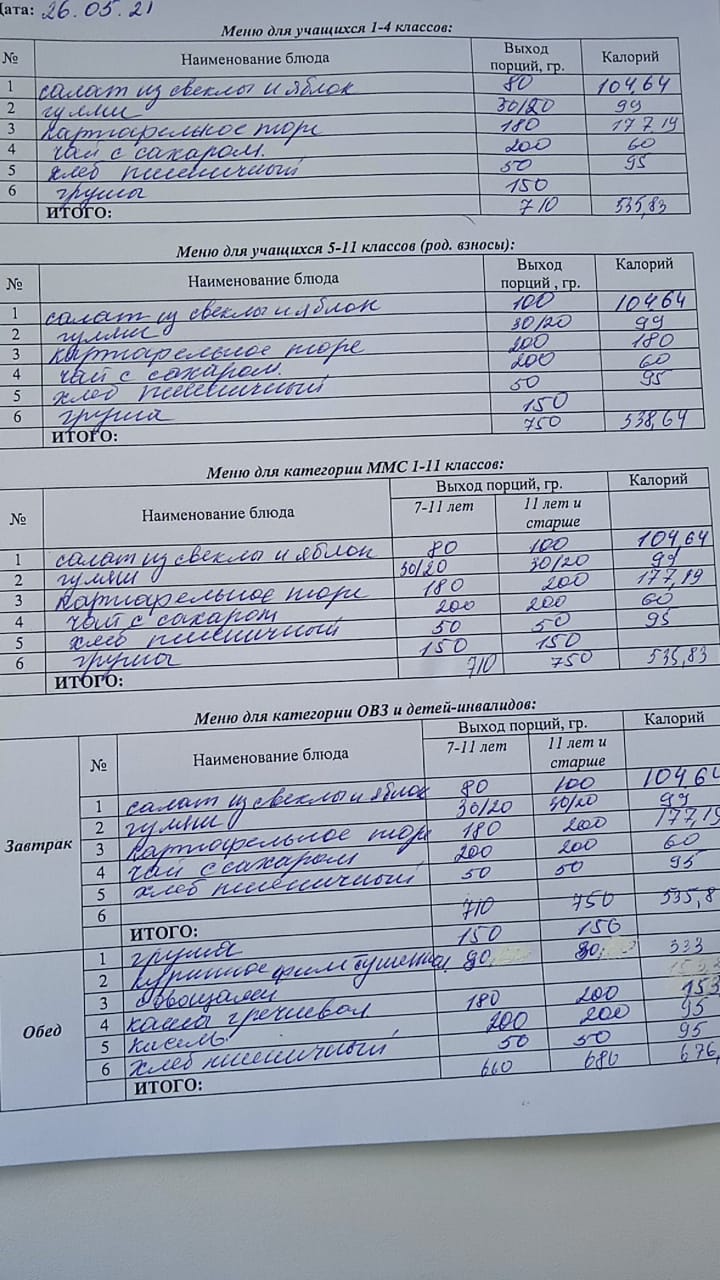 Дата: 26.05.21
Меню для учащихся 1-4 классов:
№ Наименование блюда Выход порций, гр. Калорий
1 салат из свеклы и яблок 80 104,64
2 гуляш 30/20 99
3 картофельное пюре 180 177,19
4 чай с сахаром. 200 60
5 хлеб пшеничный 50 95
6 груша 150
ИТОГО: 710 535,83
Меню для учащихся 5-11 классов (род. взносы):
№ Наименование блюда Выход порций , гр. Калорий
1 салат из свеклы и яблок 100 104,64
2 гуляш 30/20 99
3 картофельное пюре 200 180
4 чай с сахаром. 200 60
5 хлеб пшеничный 50 95
6 груша 150
ИТОГО: 750 538,64
Меню для категории ММС 1-11 классов:
№ Наименование блюда Выход порций, гр. Калорий
7-11 лет 11 лет и старше
1 салат из свеклы и яблок 80 100 104,64
2 гуляш 30/20 30/20 99
3 картофельное пюре 180 200 177,19
4 чай с сахаром 200 200 60
5 хлеб пшеничный 50 50 95
6 груша 150 150
ИТОГО: 710 750 535,83
Меню для категории ОВЗ и детей-инвалидов:
№ Наименование блюда Выход порций, гр. Калорий
7-11 лет 11 лет и старше
Завтрак
1 салат из свеклы и яблок 80 100 104,64
2 гуляш 30/20 30/20 99
3 картофельное пюре 180 200 177,19
4 чай с сахаром 200 200 60
5 хлеб пшеничный 50 50 95
6
ИТОГО: 710 750 535,8
Обед
1 груша 150 150
2 куриное филе тушенное 90 90 333
3 с овощами 153
4 каша гречневая 180 200
5 кисель 200 200 95
6 хлеб пшеничный 50 50 95
ИТОГО: 660 680 676,